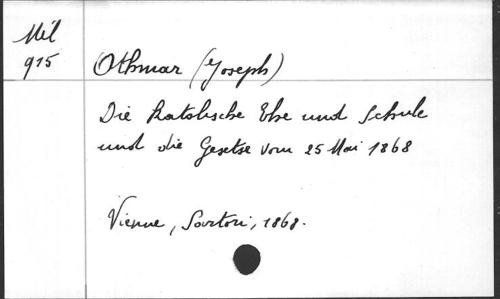 Mél
915
Othmar (Joseph)
Die Katolische Ehe und Schule
und die Gesetse vom 25 Mai 1868
Vienne, Sartori, 1868.